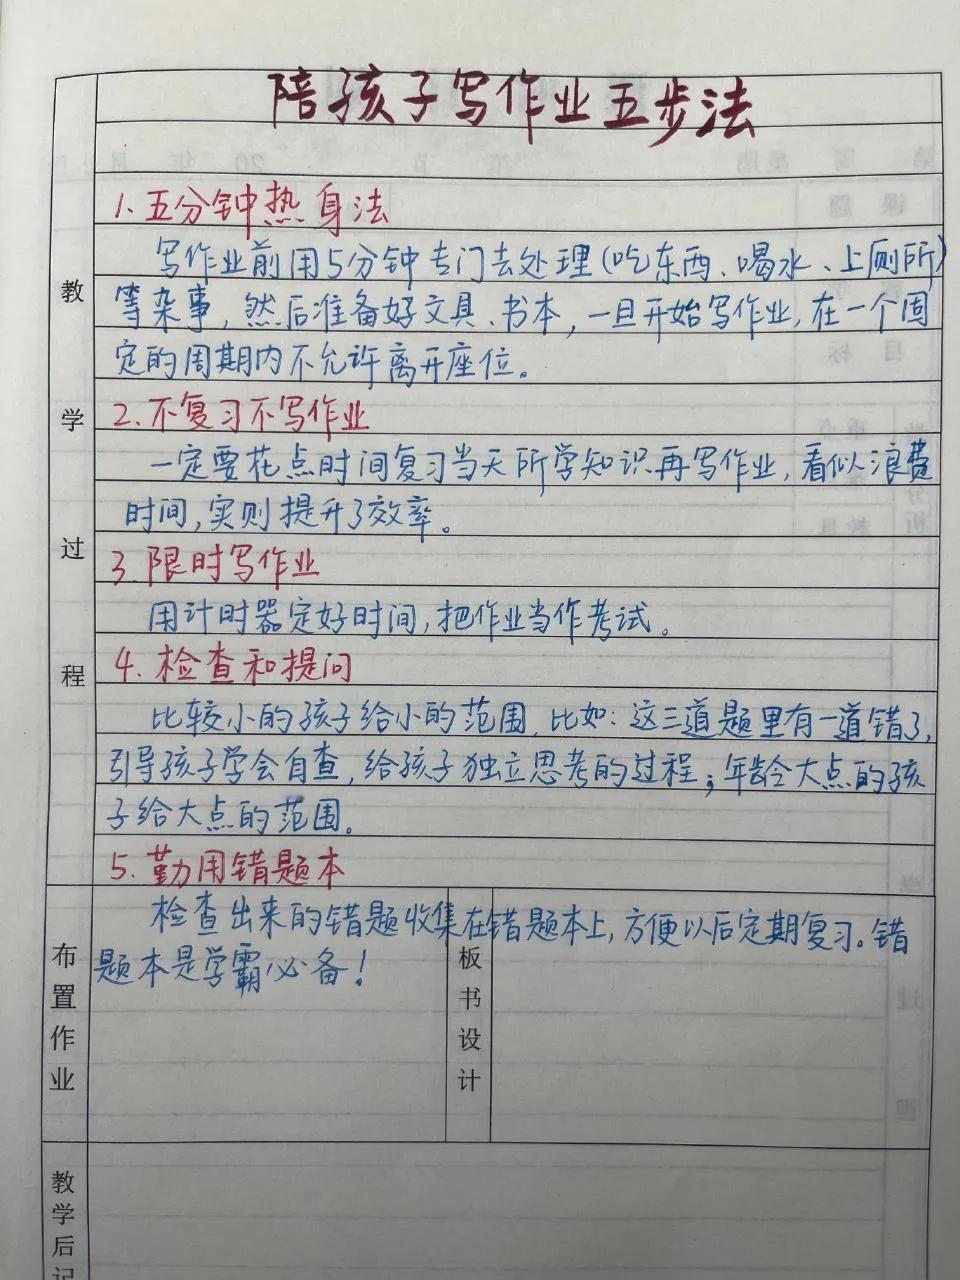 陪孩子写作业五步法
1.五分钟热身法
写作业前用5分钟专门去处理(吃东西、喝水、上厕所)
等杂事,然后准备好文具、书本,一旦开始写作业,在一个固
定的周期内不允许离开座位。
2.不复习不写作业
一定要花点时间复习当天所学知识再写作业,看似浪费
时间,实则提升了效率。
3.限时写作业
用计时器定好时间,把作业当作考试。
4.检查和提问
比较小的孩子给小的范围,比如:这三道题里有一道错了,
引导孩子学会自查,给孩子独立思考的过程;年龄大点的孩
子给大点的范围。
5.勤用错题本
检查出来的错题收集在错题本上,方便以后定期复习。错
题本是学霸必备!
教学过程
布置作业
板书设计
教学后记